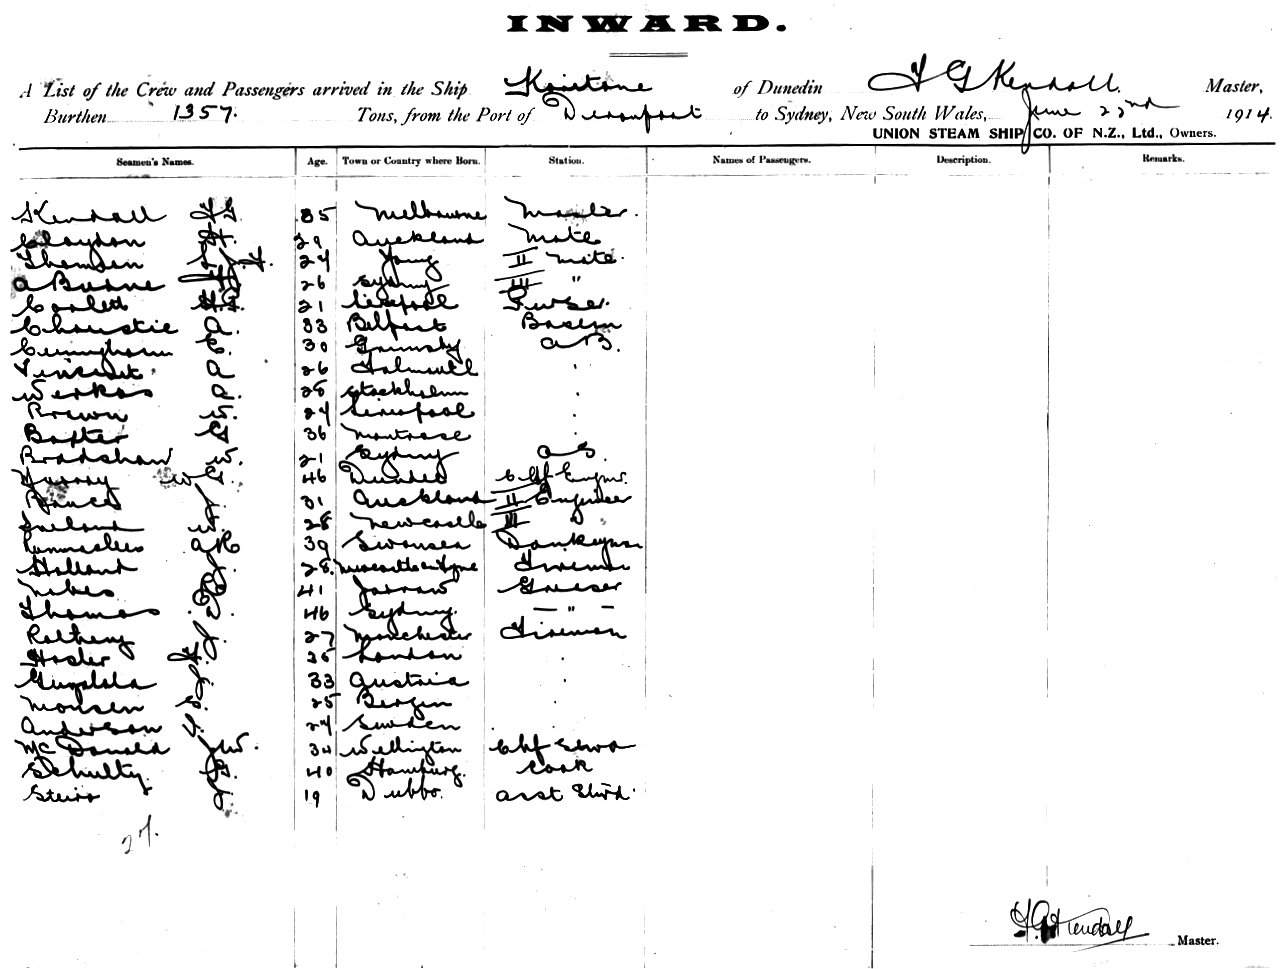 INWARD.
A List of the Crew and Passengers arrived in the Ship of Dunedin F G Kendall. Master,
Burthen 1357. Tons, from the Port of Devonport to Sydney, New South Wales, June 22nd 1914.
UNION STEAM SHIP CO. OF N.Z., Ltd., Owners.
Seamen's Names. Age. Town or Country where Born. Station. Names of Passengers. Description. Remarks.
Kendall 35 Melbourne Master.
Claydon H. 29 Auckland Mate
24 Young II Mate.
26 Sydney III "
21 Liverpool
A. 33 Belfast Bosun
Cunningham E. 30 Grimsby A B.
Vincent A 26
28 Stockholm
Brown W. 24 Liverpool
Baxter G 36 Montrose
Bradshaw W. 21 Sydney O S.
Murray W G. 46 Dundee Chf Engnr.
Bruce 31 Auckland II Engineer
Ireland W. 28 Newcastle III D
A R 39 Swansea Donkeyman
Holland J. 28. Newcastle on Tyne Fireman
41 Jarrow Greaser
Thomas D. 46 Sydney. — " —
J. 27 Manchester Fireman
London
J. 33 Austria
Monsen S. 25 Bergen
Anderson 24 Sweden
McDonald J W. 34 Wellington Chf Stwd
Schulty 40 Hamburg. Cook
J. 19 Dubbo. Asst Stwd.
27.
F.G. Kendall Master.